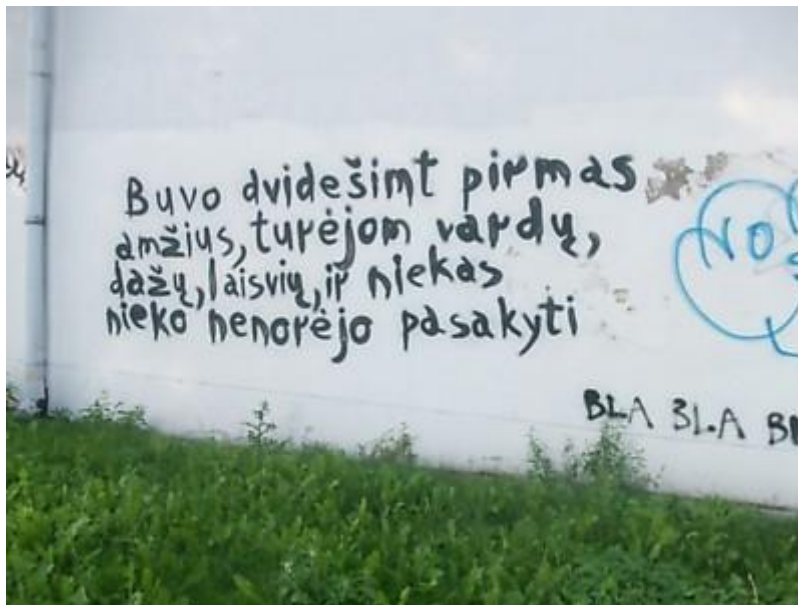 Buvo dvidešimt pirmas
amžius, turėjom vardų,
dažų, laisvių, ir niekas
nieko nenorėjo pasakyti
NO
BLA BLA